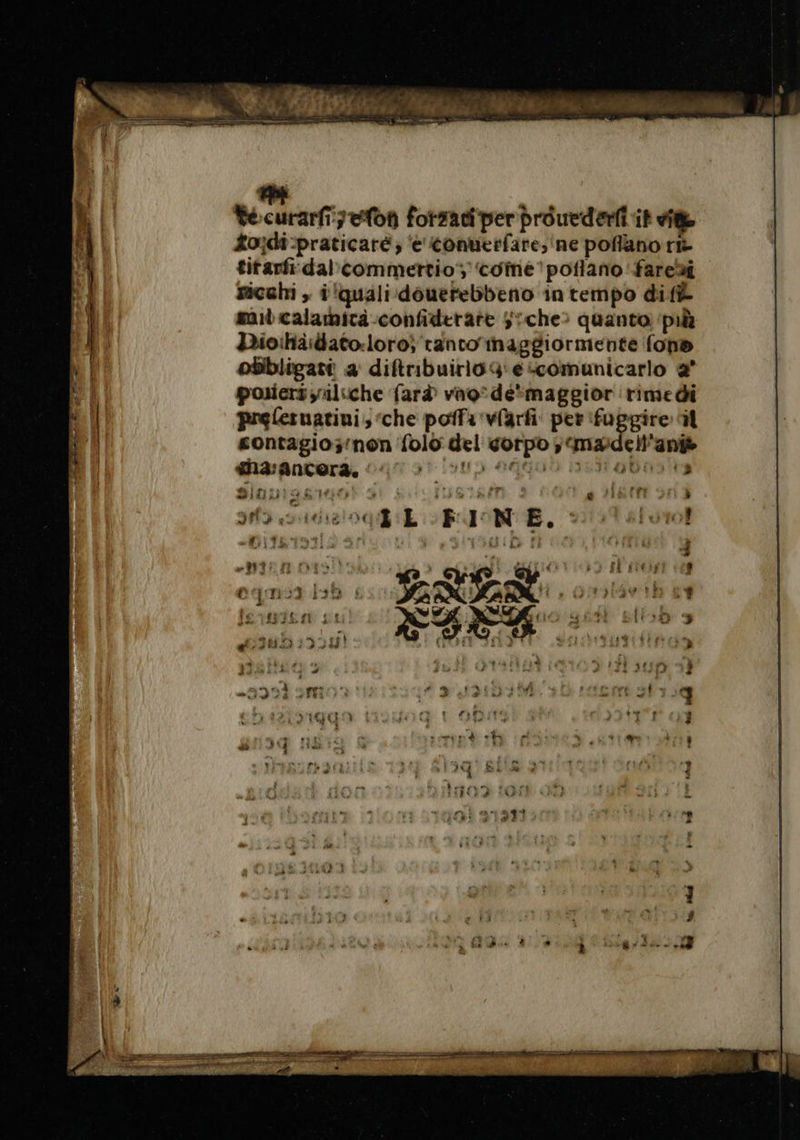 te curarsi, e son forzati per prouedersi il vitto
loro, di praticare, e conuersare, ne possano ri-
tirarsi dal commertio, come possano fare i
ricchi, i quali douerebbeno in tempo di si-
mil calamità considerare, che quanto più
Dio hà dato loro, tanto maggiormente sono
obbligati a distribuirlo, e comunicarlo a'
poueri, ilche sarà vno de' maggior rimedi
preseruatiui, che possa vsarsi per fuggire il
contagio, non solo del corpo, ma dell'ani-
ma ancora.
IL FINE.